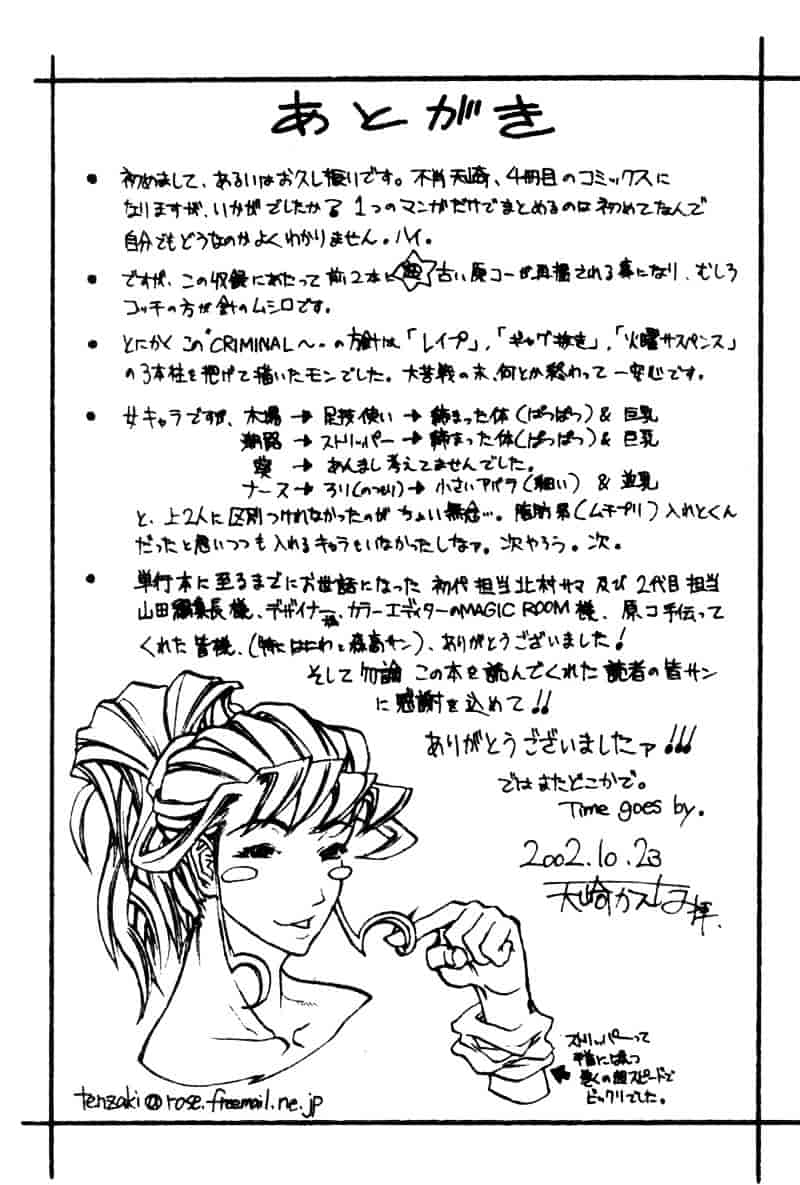 あとがき
• 初めまして、あるいはお久し振りです。不肖天崎、4冊目のコミックスに
なりますが、いかがでしたか？1つのマンガだけでまとめるのは初めてなんで
自分でもどうなのかよくわかりません。ハイ。
• ですが、この収録にあたって前2本に超古い原コーが再掲される事になり、むしろ
コッチの方が針のムシロです。
• とにかくこの"CRIMINAL〜"の方針は「レイプ」,「ギャグ抜き」,「火曜サスペンス」
の3本柱を掲げて描いたモンでした。大苦戦の末、何とか終わって一安心です。
• 女キャラですが、木場→足技使い→締まった体(ぱつぱつ)&巨乳
→ストリッパー→締まった体(ぱつぱつ)&巨乳
葵→あんまし考えてませんでした。
ナース→ろり(のつもり)→小さいアバラ(細い)&並乳
と、上2人に区別つけれなかったのがちょい無念…。脂肪系(ムチプリ)入れとくん
だったと思いつつも入れるキャラもいなかったしなァ。次やろう。次。
• 単行本に至るまでにお世話になった初代担当北村サマ及び2代目担当
山田編集長様、デザイナー様、カラーエディターのMAGIC ROOM様、原コ手伝って
くれた皆様、(特にはにわと森高サン)、ありがとうございました!
そして勿論この本を読んでくれた読者の皆サン
に感謝を込めて!!
ありがとうございましたァ!!!
ではまたどこかで。
Time goes by.
2002.10.23
天崎かんな拝.
ストリッパーって
手首にはえつ
巻くの超スピードで
ビックリでした。
tenzaki@rose.freemail.ne.jp